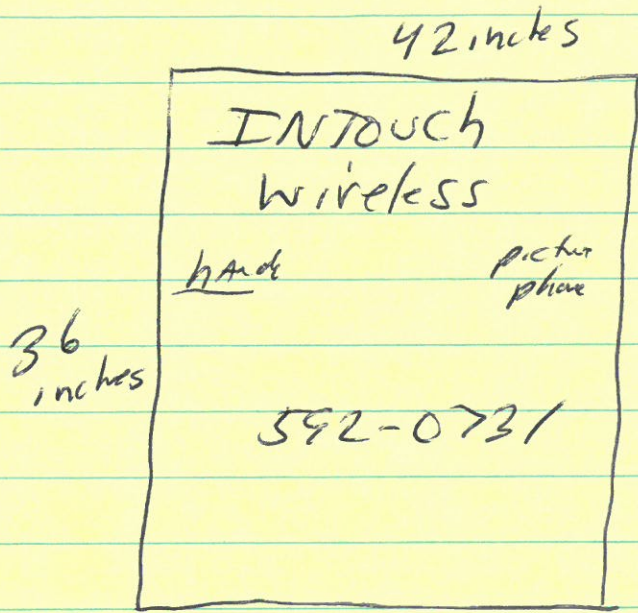 42 inches
INTOUCh
wireless
hand
picture
phone
36
inches
592-0731